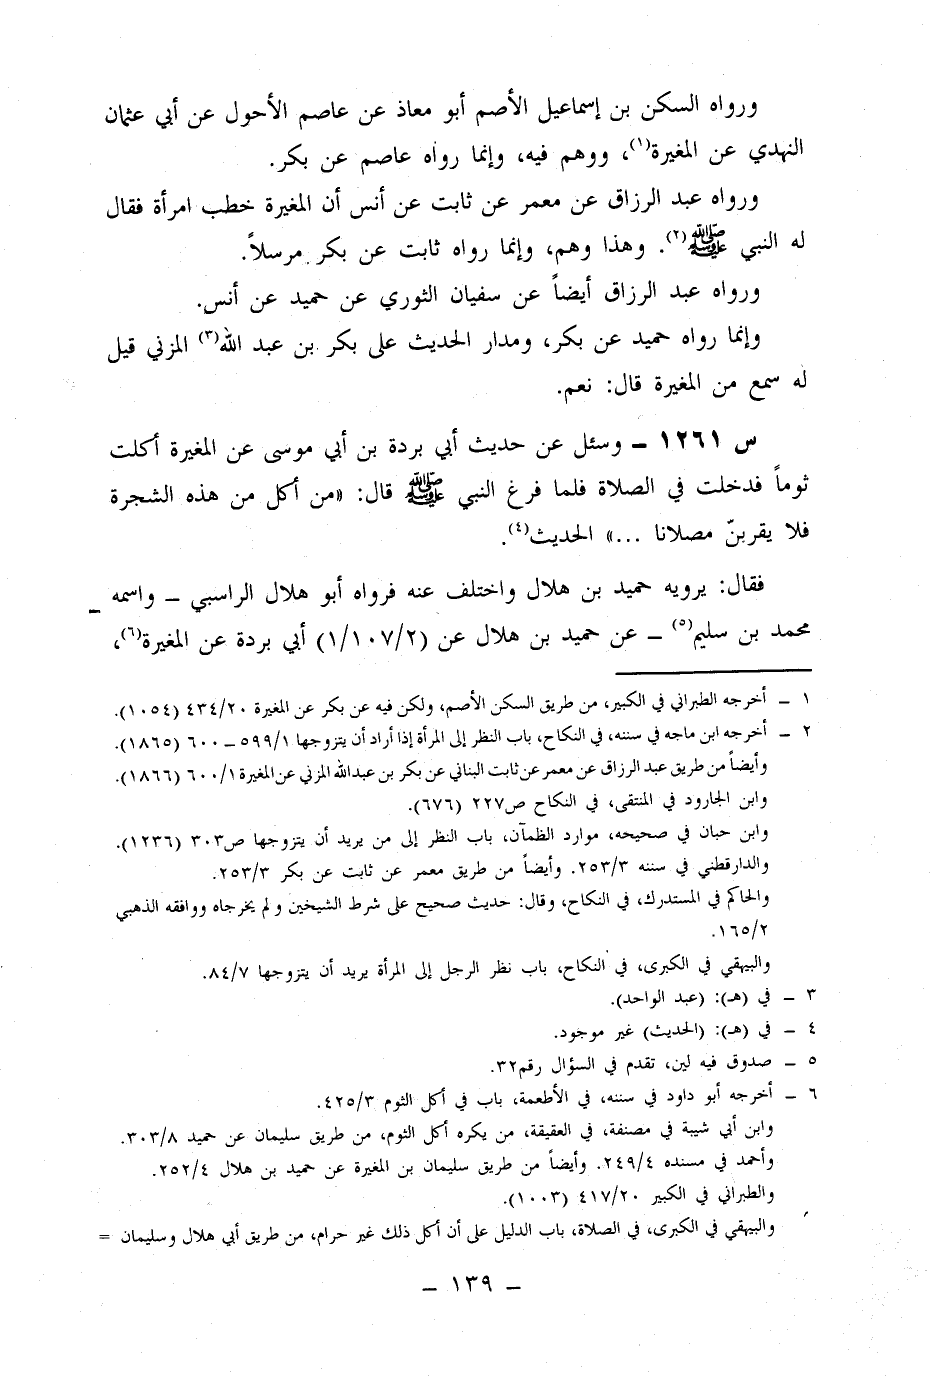 ورواه السكن بن إسماعيل الأصم أبو معاذ عن عاصم الأحول عن أبي عثمان
النهدي عن المغيرة(١)، ووهم فيه، وإنما رواه عاصم عن بكر.
ورواه عبد الرزاق عن معمر عن ثابت عن أنس أن المغيرة خطب امرأة فقال
له النبي ﷺ(٢). وهذا وهم، وإنما رواه ثابت عن بكر مرسلاً.
ورواه عبد الرزاق أيضاً عن سفيان الثوري عن حميد عن أنس.
وإنما رواه حميد عن بكر، ومدار الحديث على بكر بن عبد الله(٣) المزني قيل
له سمع من المغيرة قال: نعم.
س ١٢٦١ – وسئل عن حديث أبي بردة بن أبي موسى عن المغيرة أكلت
ثوماً فدخلت في الصلاة فلما فرغ النبي ﷺ قال: «من أكل من هذه الشجرة
فلا يقربنّ مصلانا ...» الحديث(٤).
فقال: يرويه حميد بن هلال واختلف عنه فرواه أبو هلال الراسبي – واسمه
محمد بن سليم(٥) – عن حميد بن هلال عن (١/١٠٧/٢) أبي بردة عن المغيرة(٦)،
١ – أخرجه الطبراني في الكبير، من طريق السكن الأصم، ولكن فيه عن بكر عن المغيرة ٤٣٤/٢٠ (١٠٥٤).
٢ – أخرجه ابن ماجه في سننه، في النكاح، باب النظر إلى المرأة إذا أراد أن يتزوجها ٥٩٩/١ – ٦٠٠ (١٨٦٥).
وأيضاً من طريق عبد الرزاق عن معمر عن ثابت البناني عن بكر بن عبدالله المزني عن المغيرة ٦٠٠/١ (١٨٦٦).
وابن الجارود في المنتقى، في النكاح ص٢٢٧ (٦٧٦).
وابن حبان في صحيحه، موارد الظمآن، باب النظر إلى من يريد أن يتزوجها ص٣٠٣ (١٢٣٦).
والدارقطني في سننه ٢٥٣/٣. وأيضاً من طريق معمر عن ثابت عن بكر ٢٥٣/٣.
والحاكم في المستدرك، في النكاح، وقال: حديث صحيح على شرط الشيخين ولم يخرجاه ووافقه الذهبي
١٦٥/٢.
والبيهقي في الكبرى، في النكاح، باب نظر الرجل إلى المرأة يريد أن يتزوجها ٨٤/٧.
٣ – في (هـ): (عبد الواحد).
٤ – في (هـ): (الحديث) غير موجود.
٥ – صدوق فيه لين، تقدم في السؤال رقم٣٢.
٦ – أخرجه أبو داود في سننه، في الأطعمة، باب في أكل الثوم ٤٢٥/٣.
وابن أبي شيبة في مصنفة، في العقيقة، من يكره أكل الثوم، من طريق سليمان عن حميد ٣٠٣/٨.
وأحمد في مسنده ٢٤٩/٤. وأيضاً من طريق سليمان بن المغيرة عن حميد بن هلال ٢٥٢/٤.
والطبراني في الكبير ٤١٧/٢٠ (١٠٠٣).
والبيهقي في الكبرى، في الصلاة، باب الدليل على أن أكل ذلك غير حرام، من طريق أبي هلال وسليمان =
– ١٣٩ –